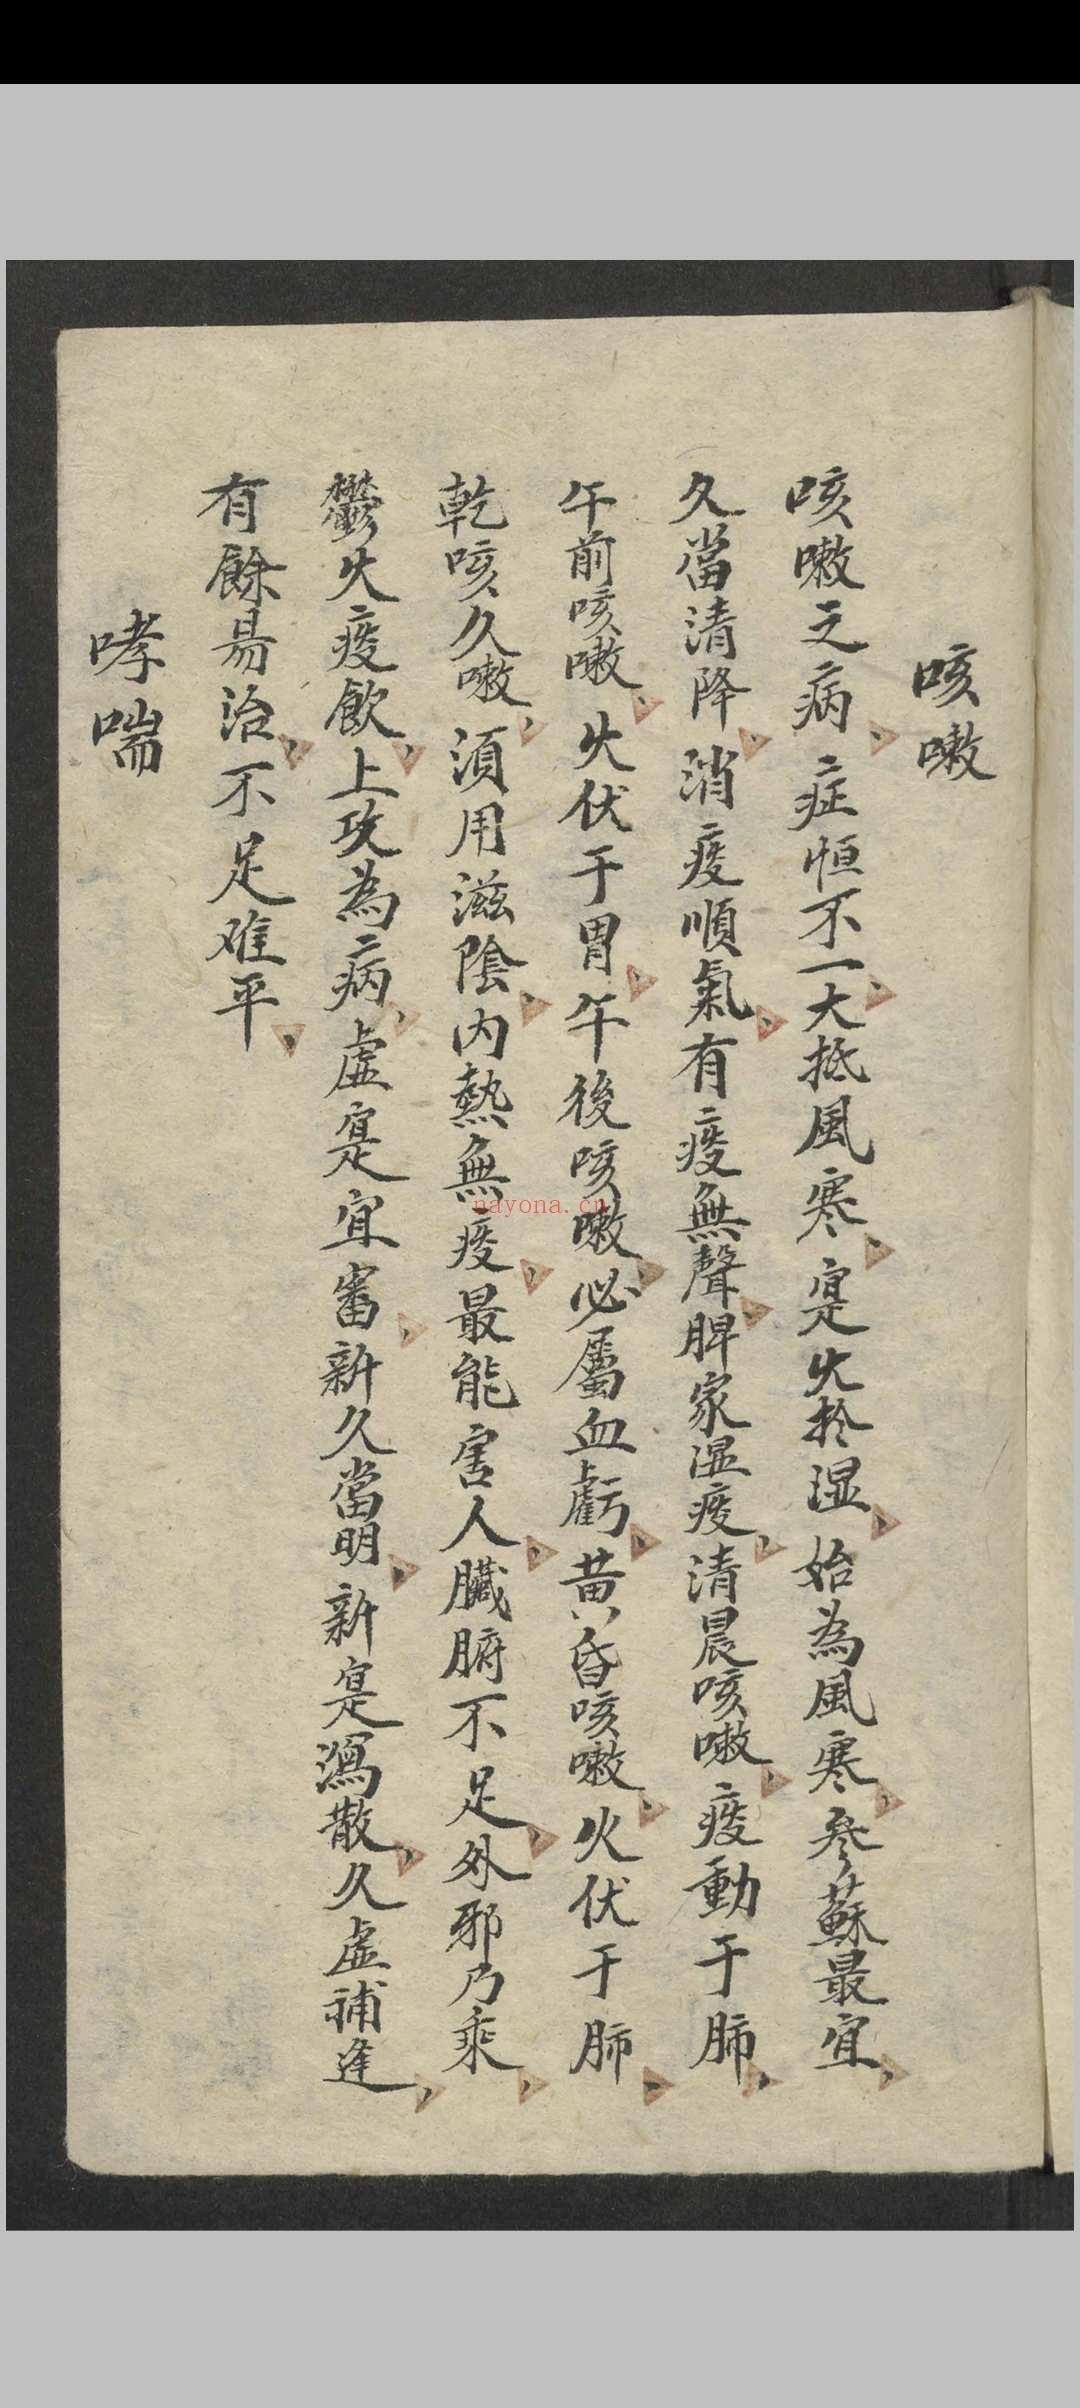 咳嗽
咳嗽之病症恒不一大抵風寒寔火於湿始為風寒參蘇最宜
久當清降消痰順氣有痰無聲脾家湿痰清晨咳嗽痰動于肺
午前咳嗽火伏于胃午後咳嗽必屬血虧黄昏咳嗽火伏于肺
乾咳久嗽須用滋陰内熱無痰最能害人臟腑不足外邪乃乘
鬱火痰飲上攻為病虛寔宜審新久當明新寔瀉散久虛補逢
有餘易治不足难平
哮喘
nayona.cn